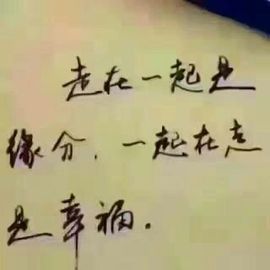 走在一起是
缘分，一起在走
是幸福．